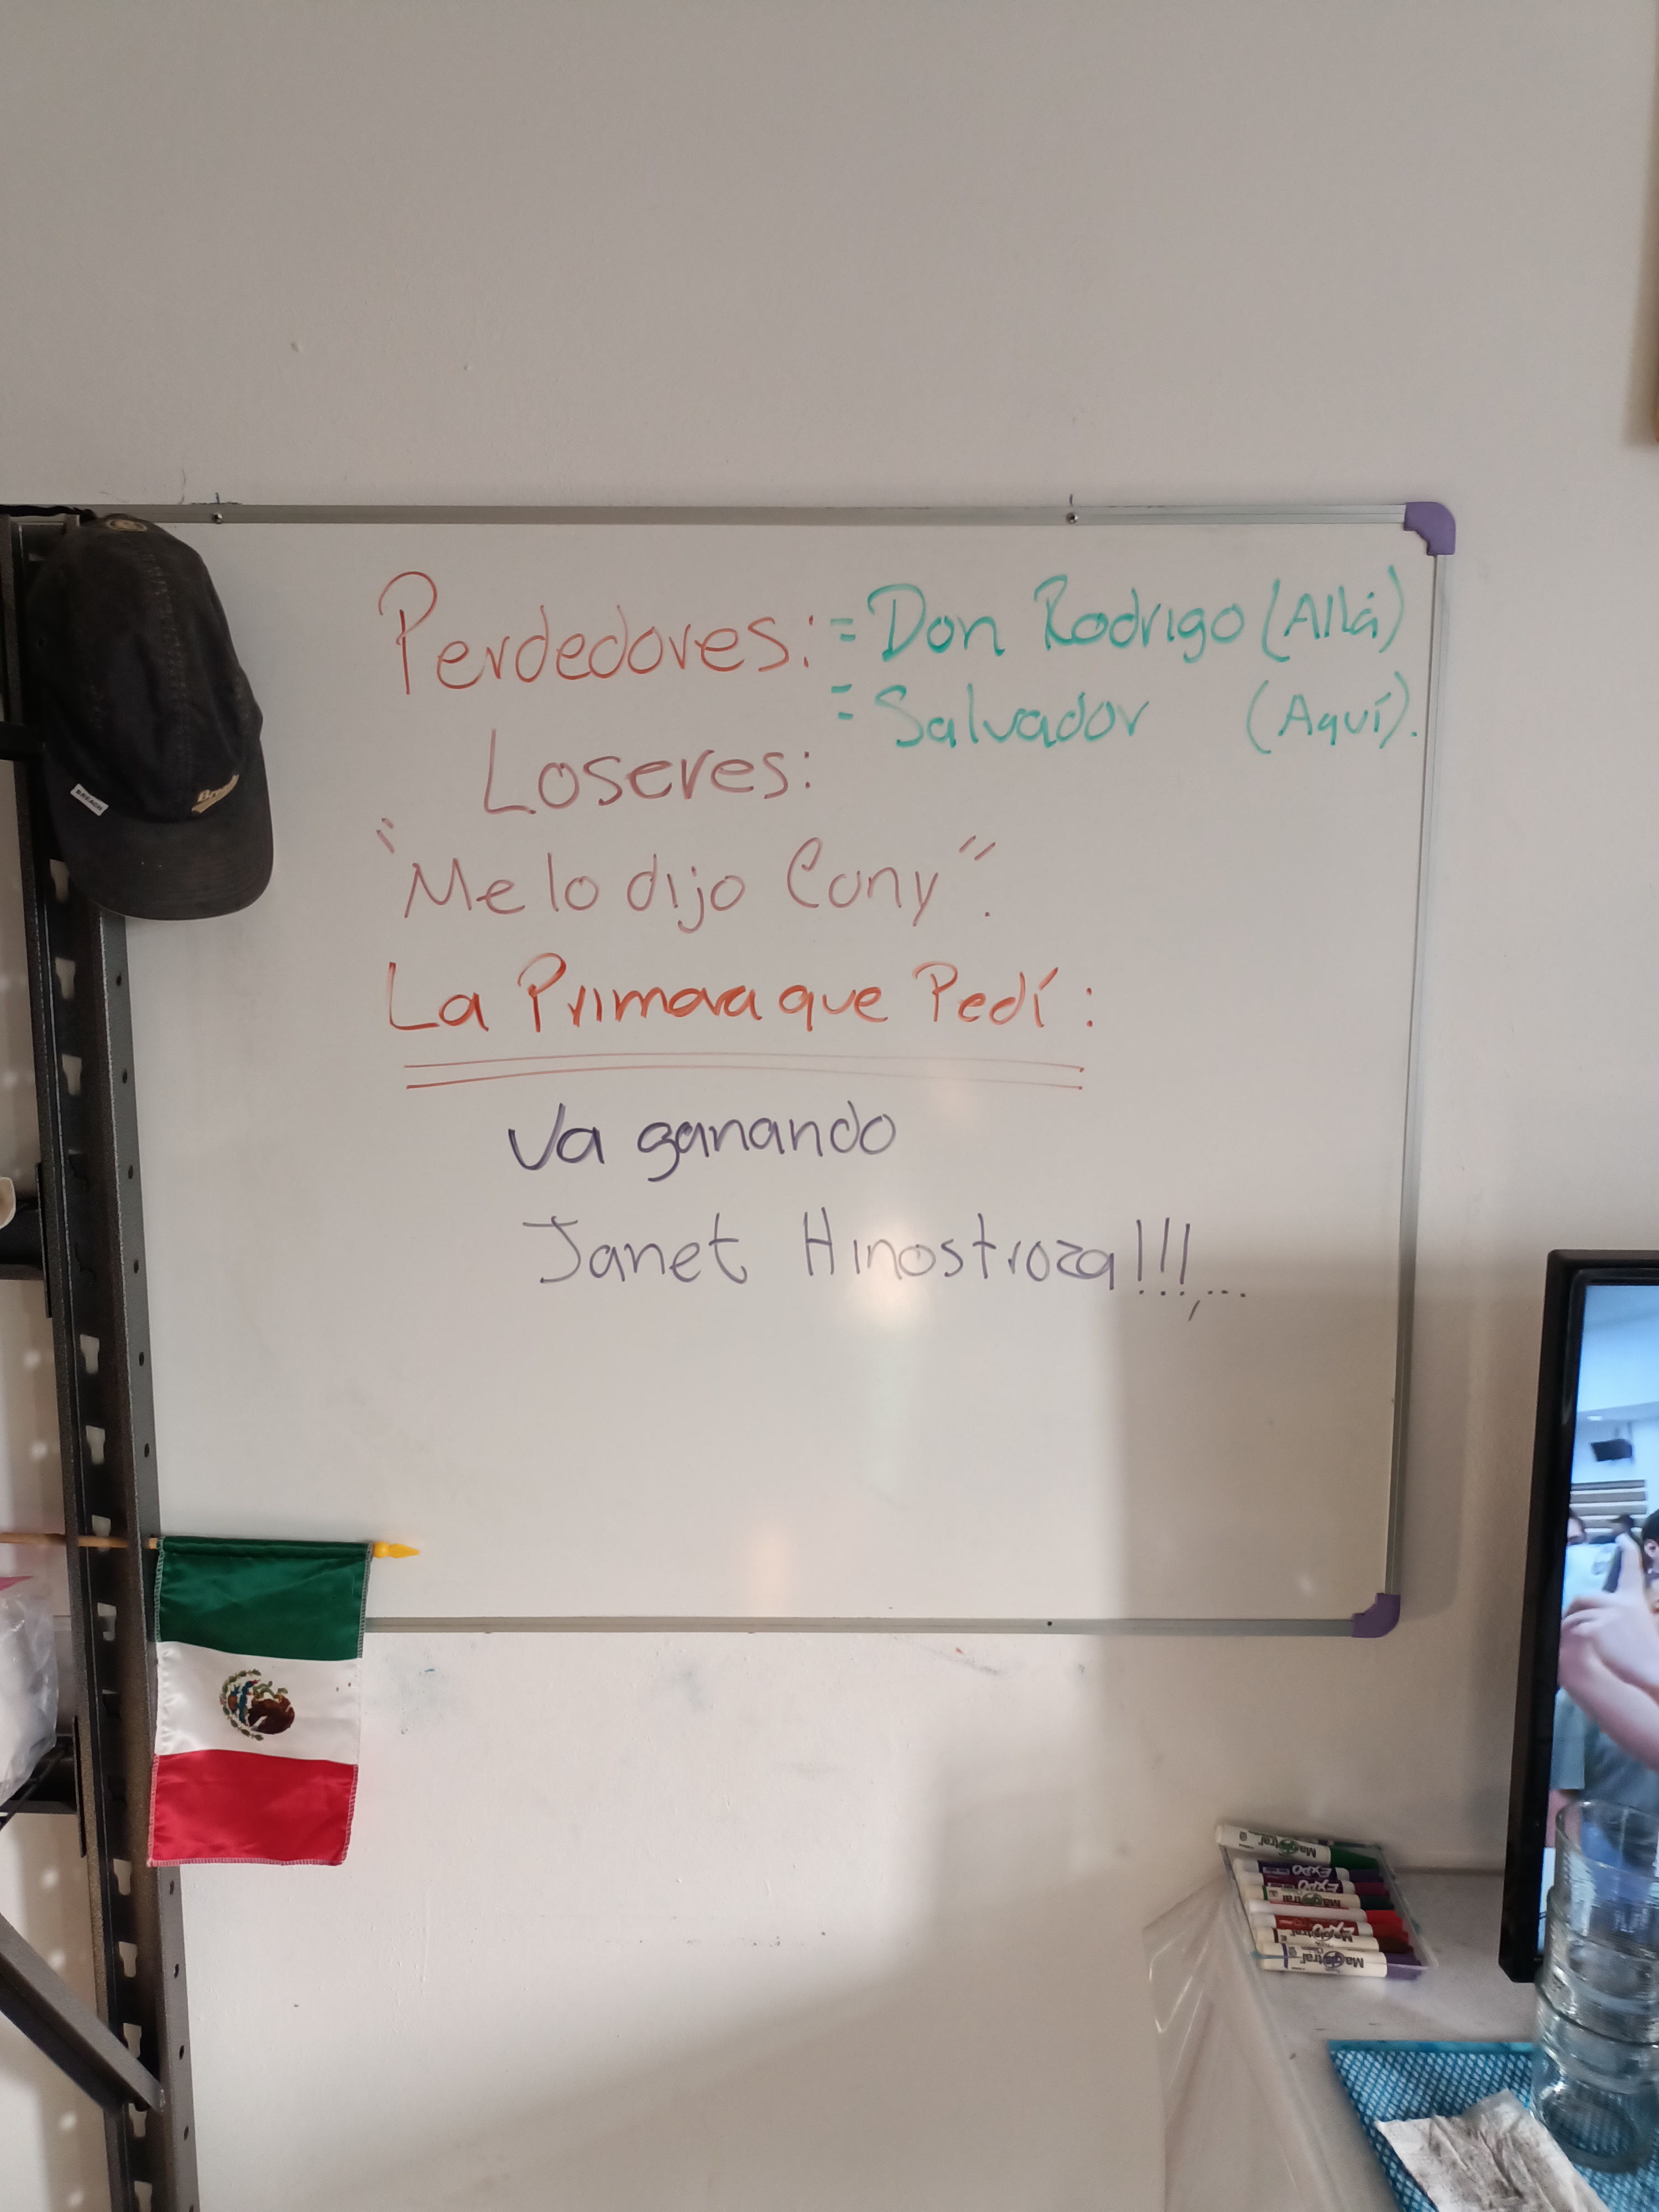 Perdedores: = Don Rodrigo (Allá)
= Salvador (Aquí).
Loseres:
"Me lo dijo Cony".
La Primera que Pedí:
Va ganando
Janet Hinostroza!!!,...
BREACH
Magistral
EXPO
EXPO
Magistral
EXPO
Magistral
Magistral